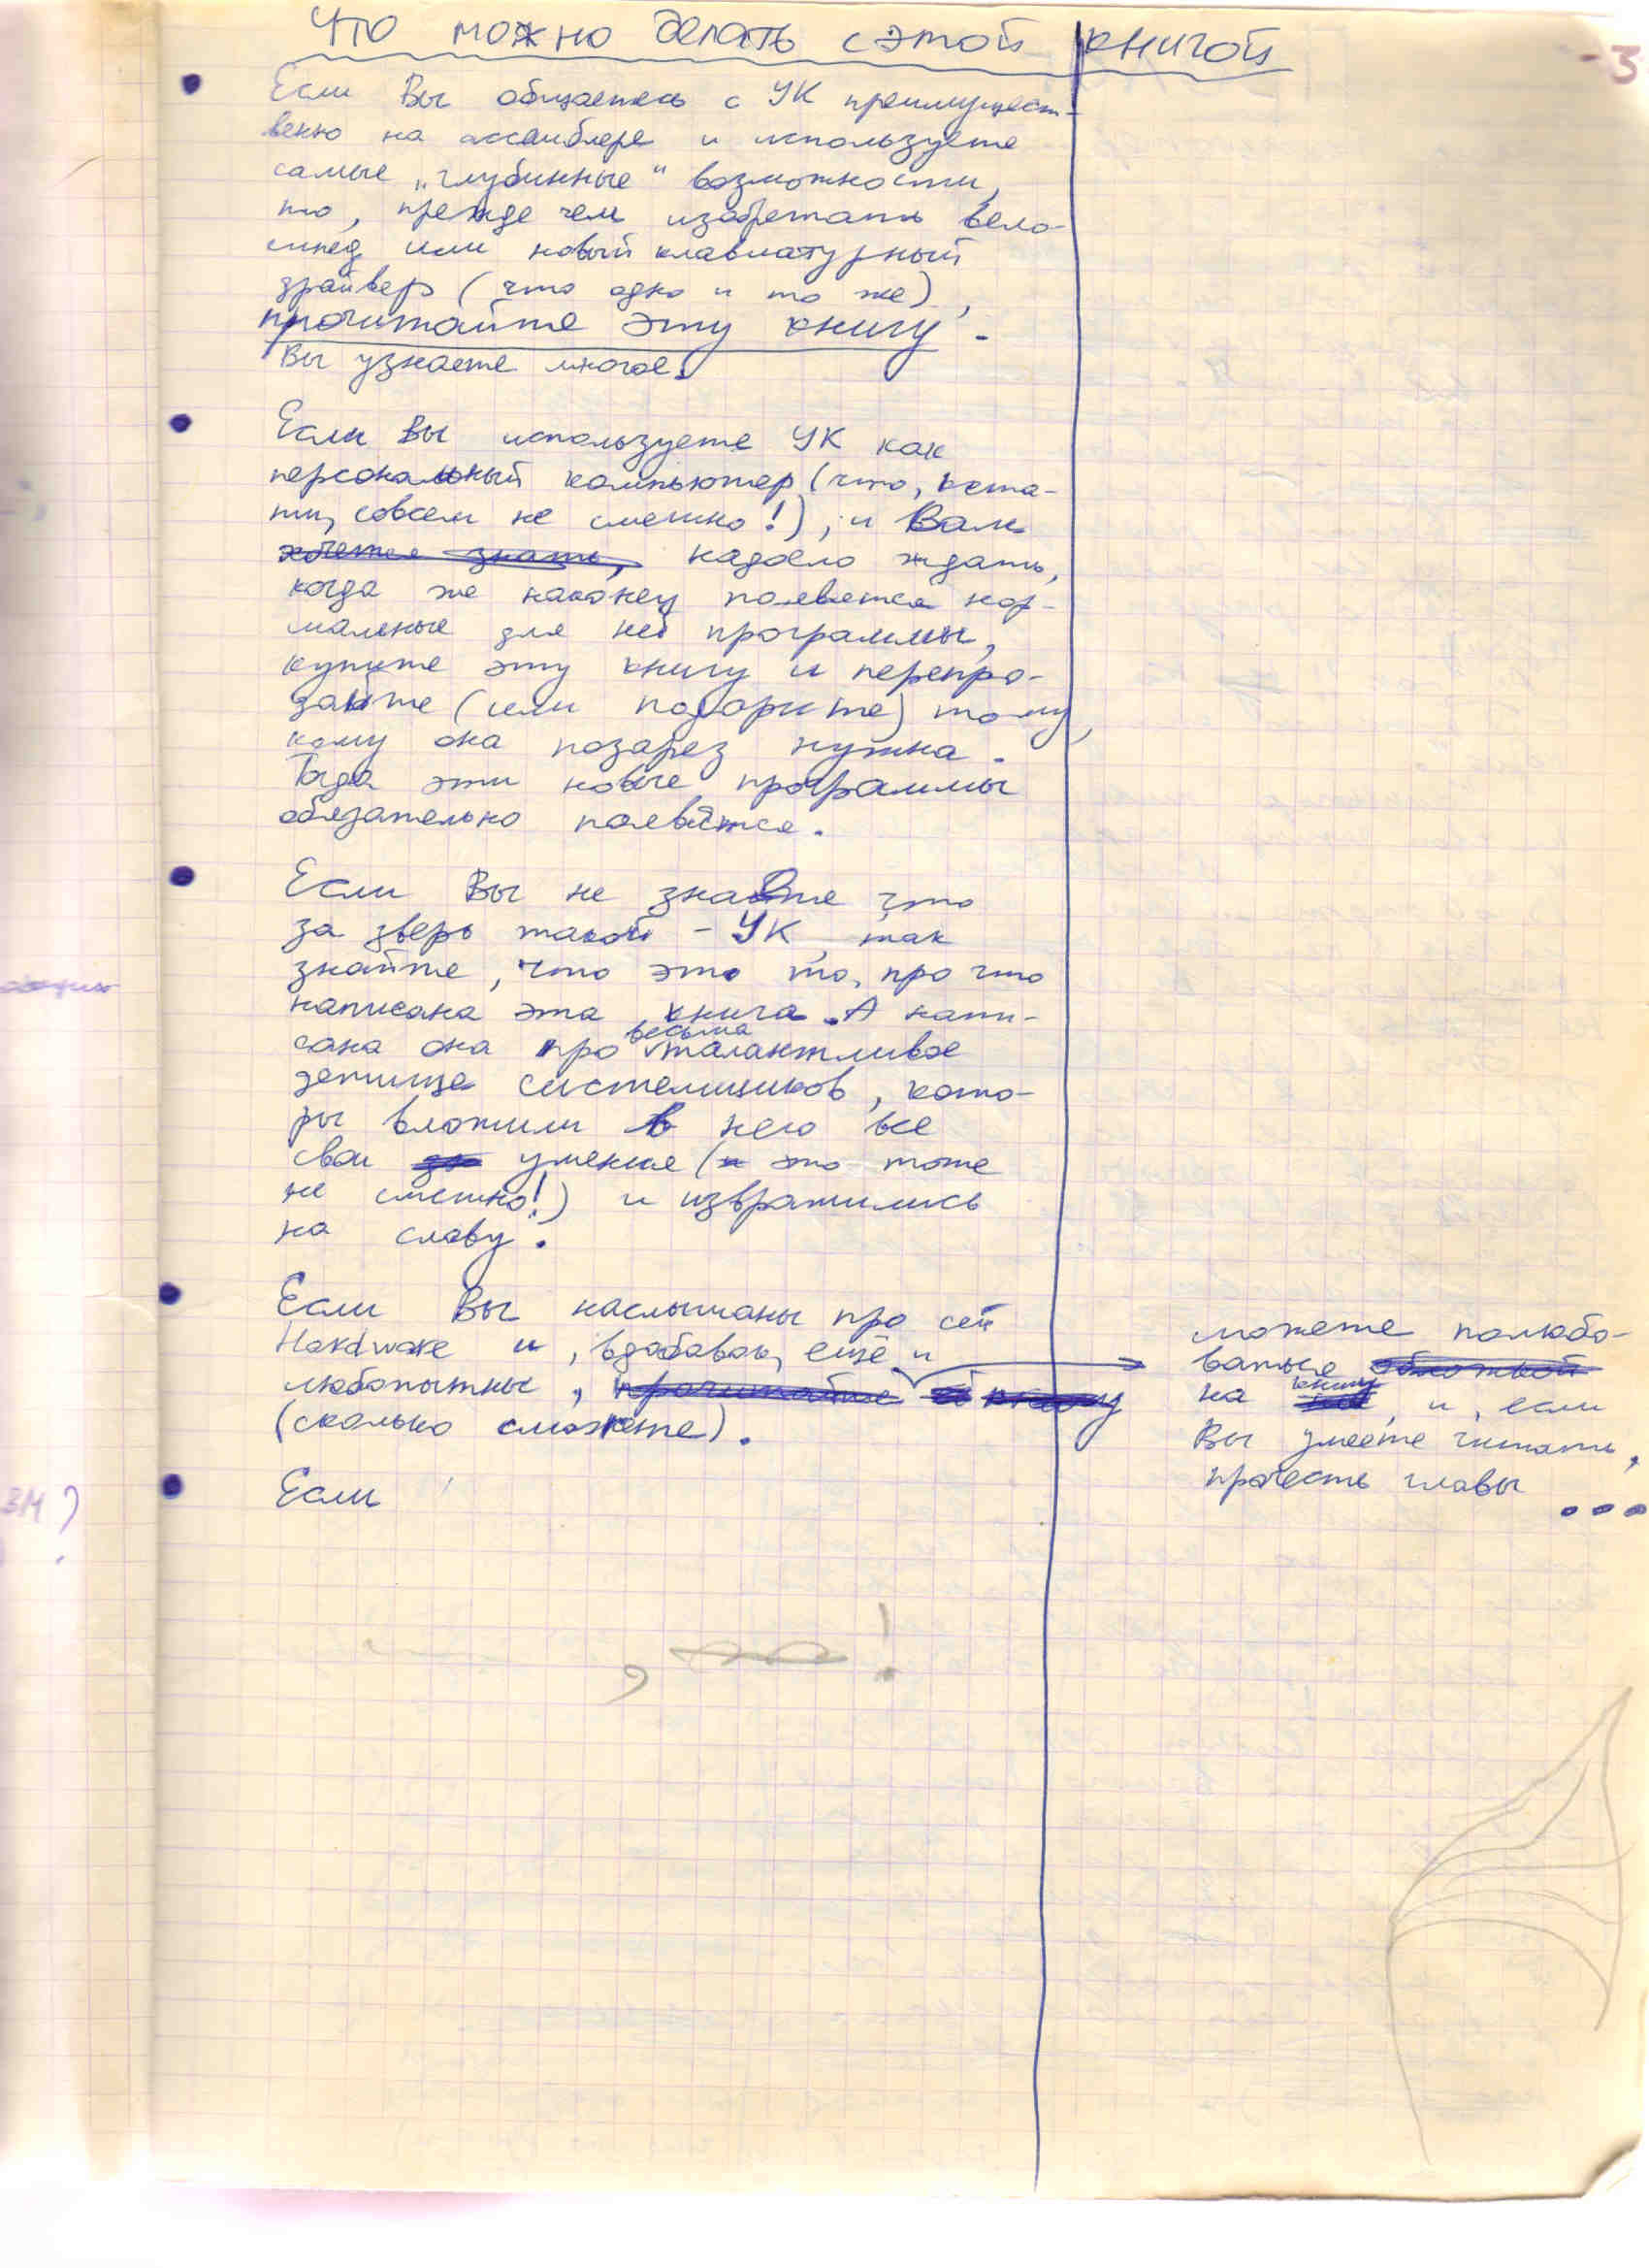 Что можно делать с этой книгой
-3
Если Вы общаетесь с УК преимущест-
венно на ассемблере и используете
самые „глубинные“ возможности,
то, прежде чем изобретать вело-
сипед или новый клавиатурный
драйвер (что одно и то же),
прочитайте эту книгу.
Вы узнаете многое.
Если Вы используете УК как
персональный компьютер (что, кста-
ти, совсем не смешно!), и Вам
хочется знать, надоело ждать,
когда же наконец появятся нор-
мальные для неё программы,
купите эту книгу и перепро-
дайте (или подарите) тому,
кому она позарез нужна.
Тогда эти новые программы
обязательно появятся.
Если Вы не знаете что
за зверь такой - УК, так
знайте, что это то, про что
написана эта книга. А напи-
сана она про весьма талантливое
детище системщиков, кото-
ры вложили в него все
свои умение (и это тоже
не смешно!) и извратились
на славу.
Если Вы наслышаны про сей
Hardware и, вдобавок, ещё и
любопытны, прочитайте книгу
(сколько сможете).
можете полюбо-
ваться обложкой
на книгу, и, если
Вы умеете читать,
прочесть главы ...
Если